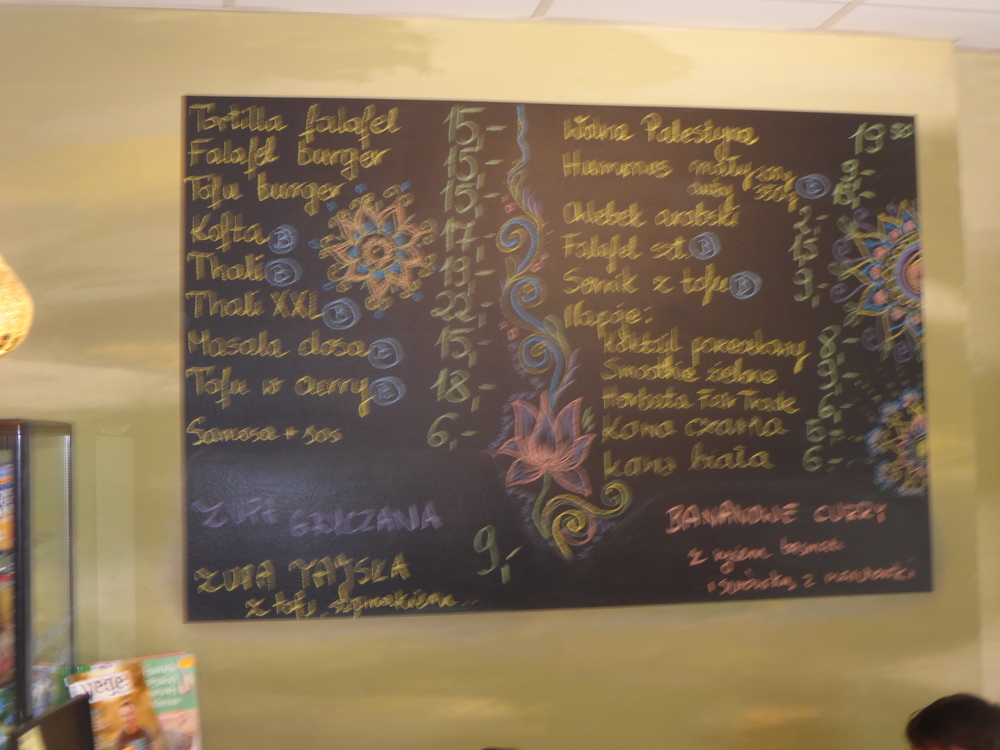 Tortilla falafel 15,-
Falafel burger 15,-
Tofu burger 15,-
Kofta B 17,-
Thali B 19,-
Thali XXL B 22,-
Masala dosa B 15,-
Tofu w curry B 18,-
Samosa + sos 6,-
9,-
ZUPA TAJSKA
z tofu, szpinakiem..
Wolna Palestyna 19 50
Hummus mały
duży 350g B
Chlebek arabski 2,-
Falafel szt. B 15,-
Sernik z tofu B 9,-
Napoje:
8,-
Smoothie zielone 9,-
Herbata Fair Trade 6,-
Kawa czarna 5,-
Kawa biała 6,-
BANANOWE CURRY
z ryżem basmati
i surówką z marchewki
vege